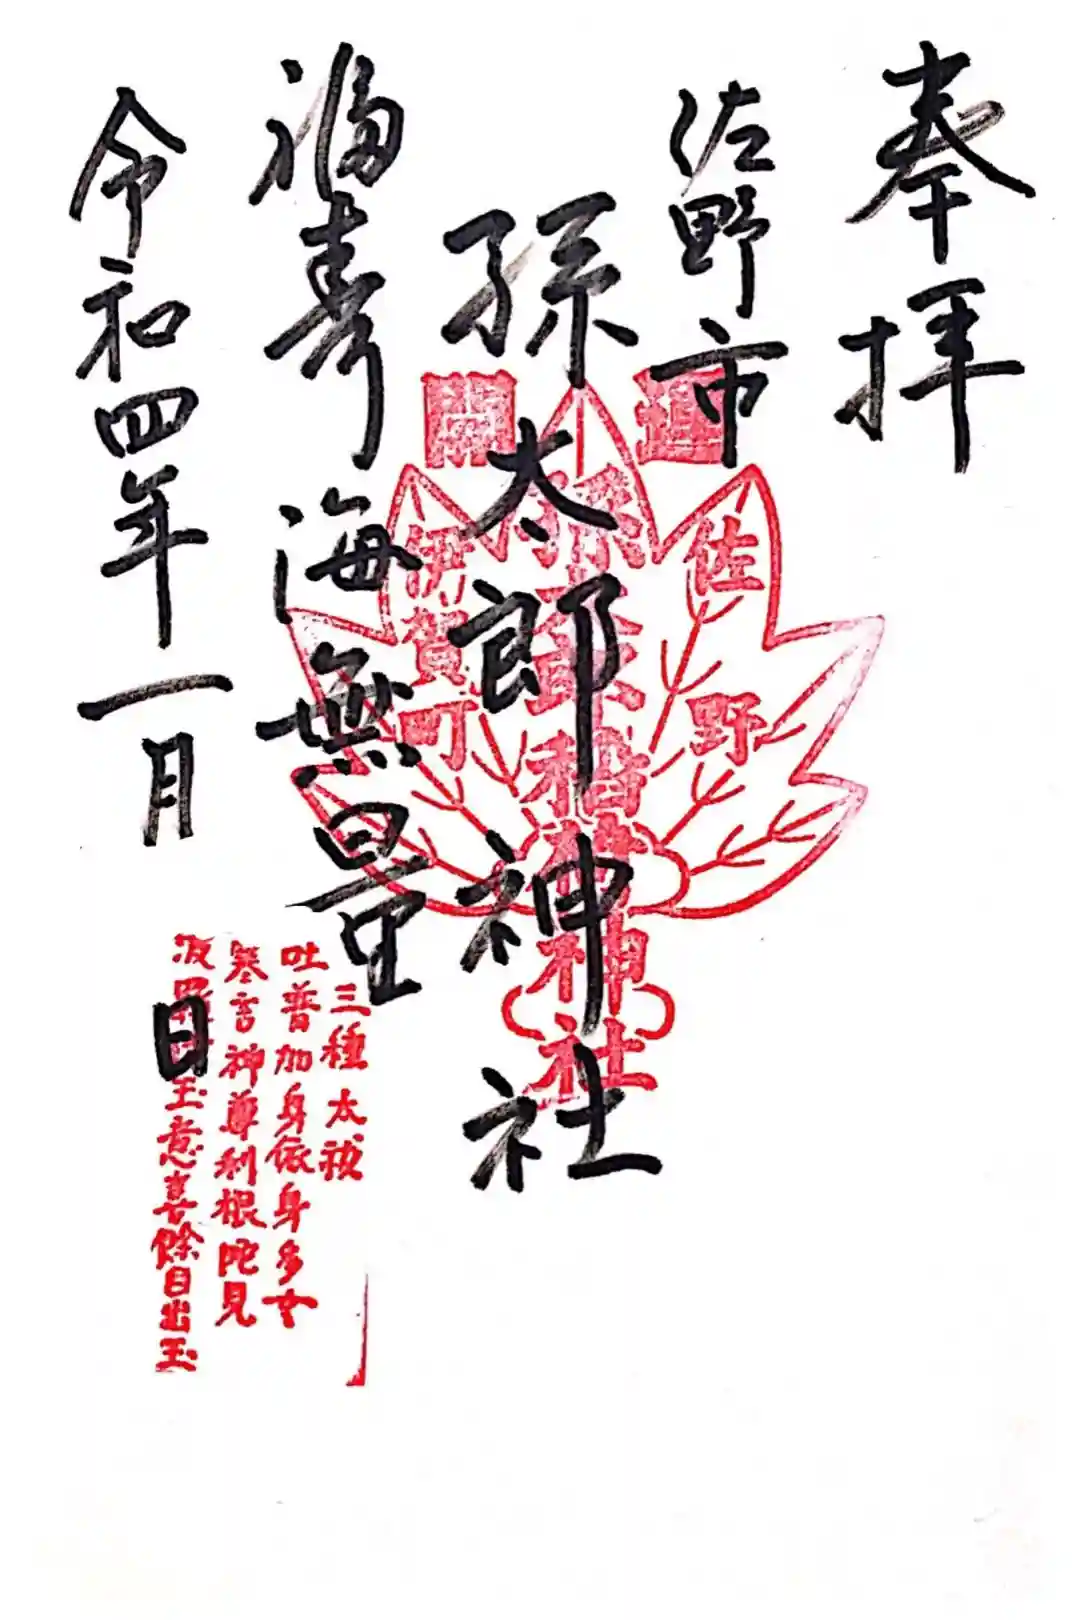 奉拝
佐野市
孫太郎神社
福寿海無量
令和四年一月
日
開運
佐野
孫太郎稲荷神社
伊賀町
三種太祓
吐普加身依身多女
寒言神尊利根陀見
玉意喜餘目出玉